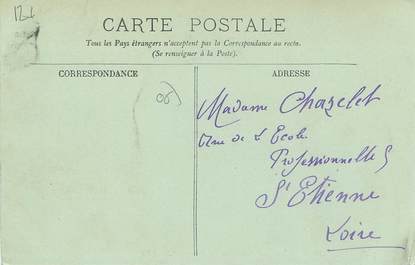 CARTE POSTALE
Tous les Pays étrangers n'acceptent pas la Correspondance au recto.
(Se renseigner à la Poste).
CORRESPONDANCE
ADRESSE
Madame Chazelet
Rue de l'Ecole
Professionnelle 5
St Etienne
Loire